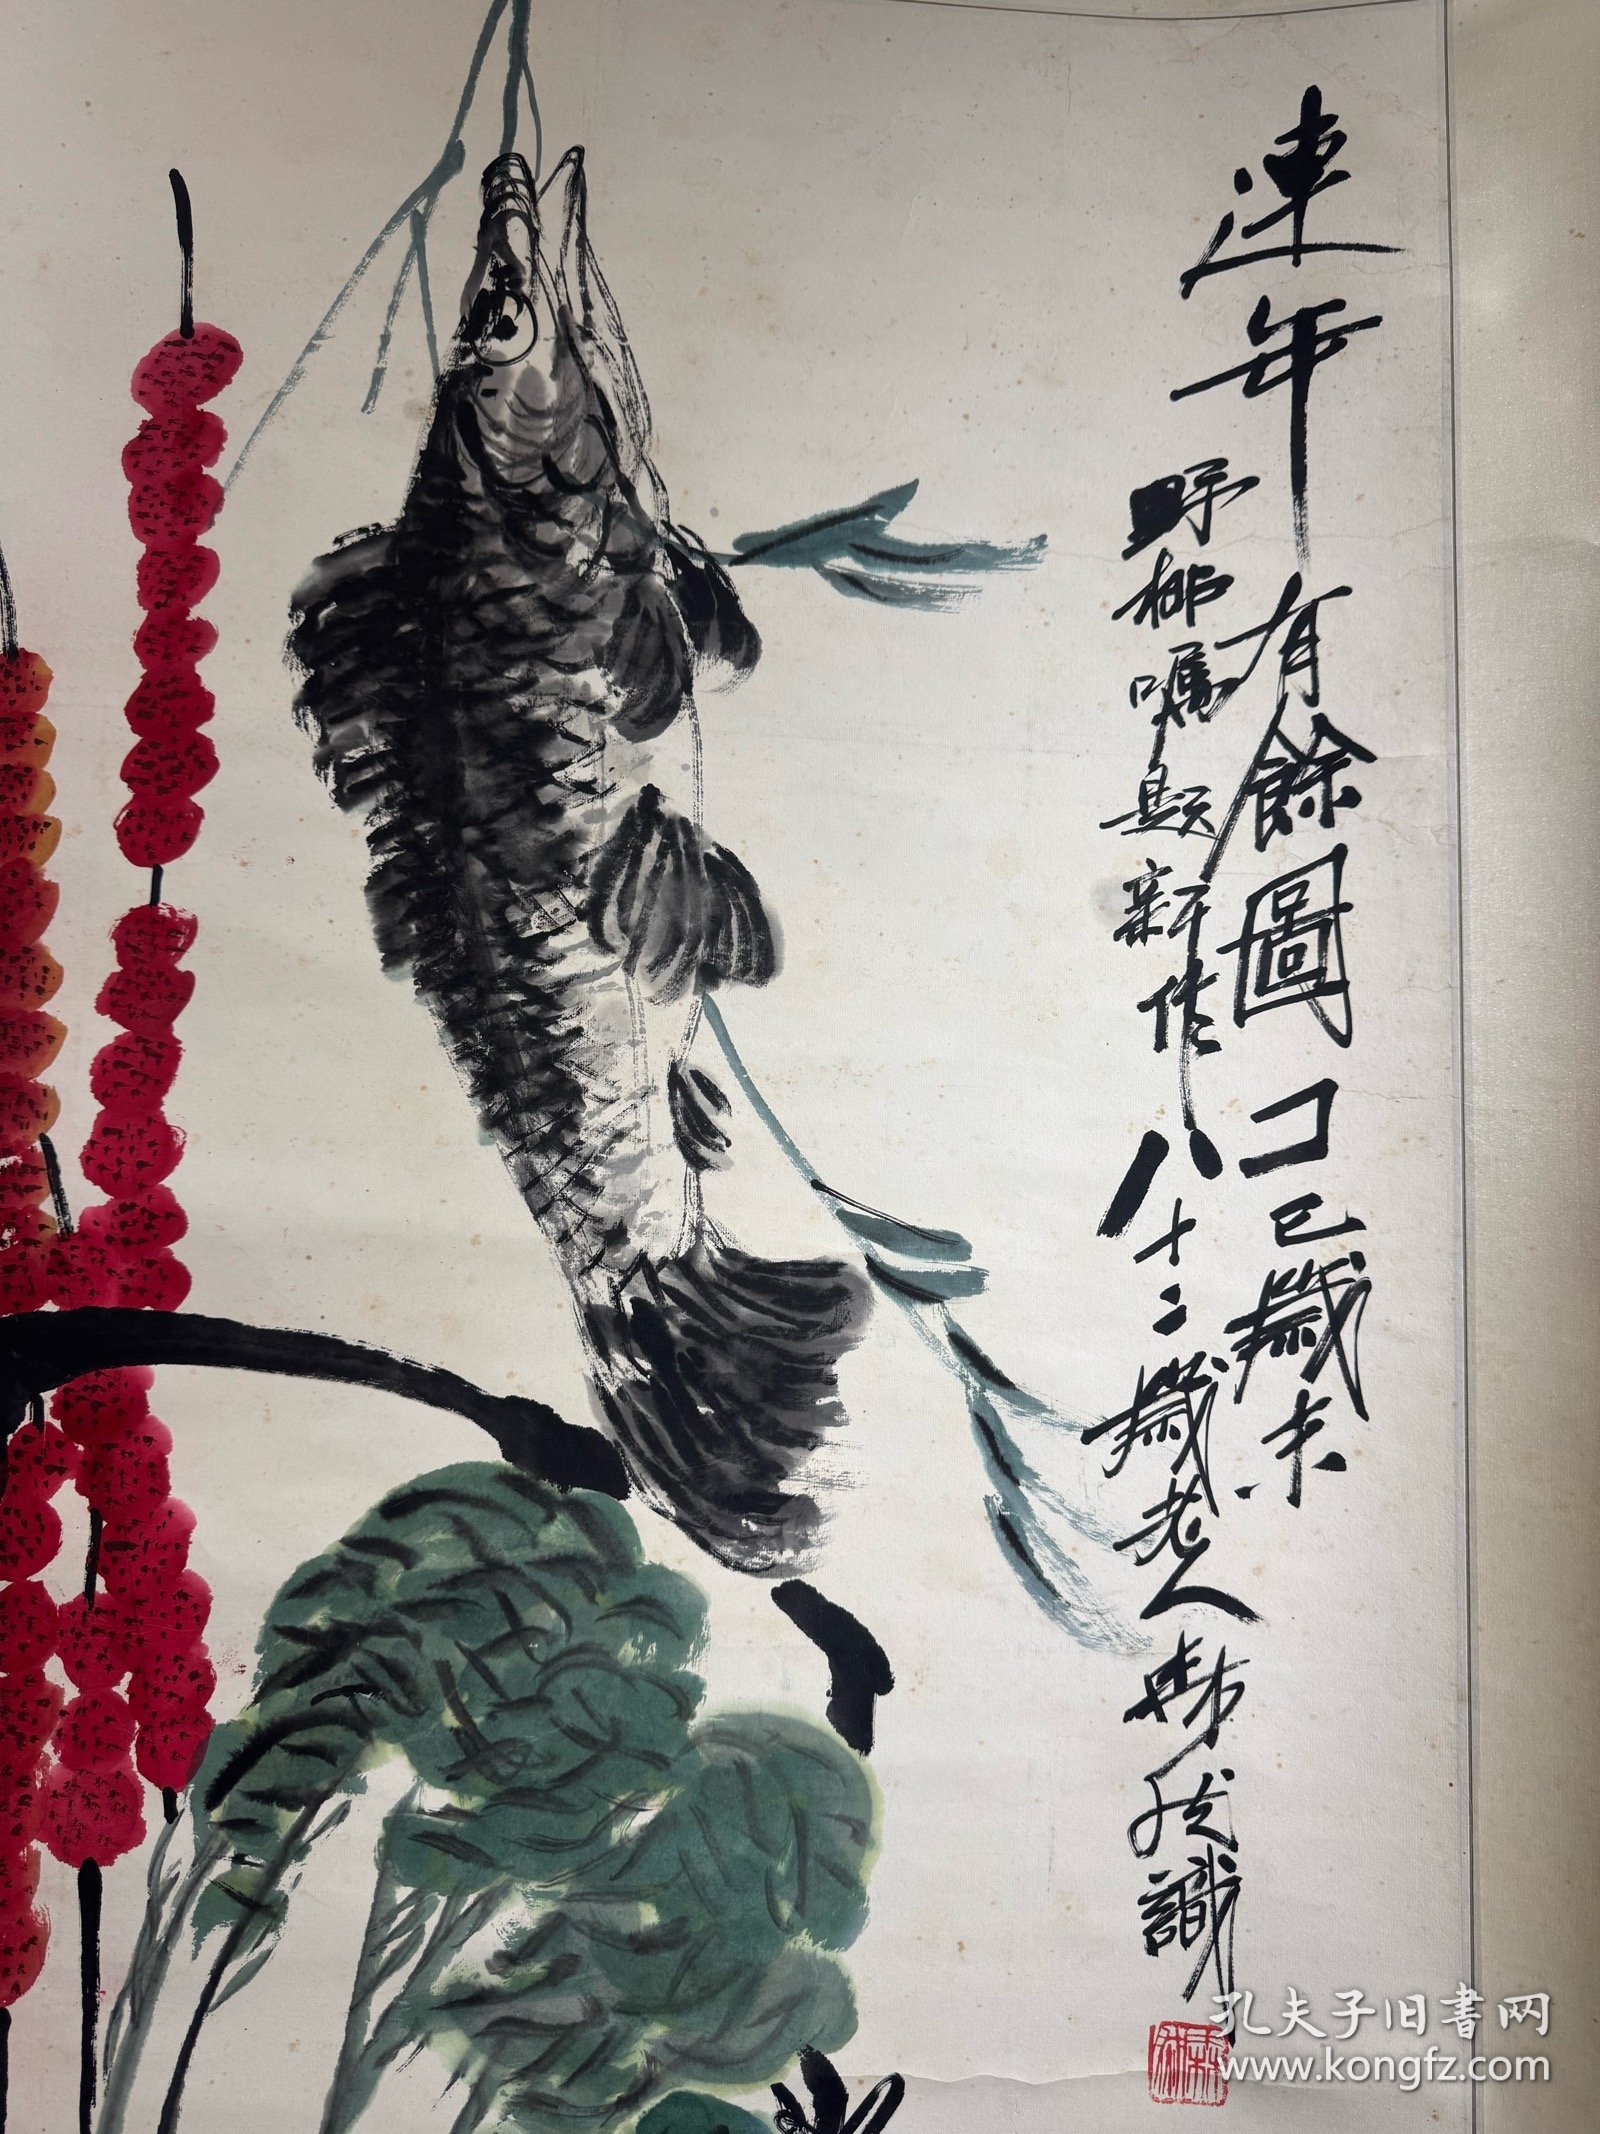 連年有餘圖 己巳歲末
野柳囑題新作 八十二歲老人 識
孔夫子旧書网
www.kongfz.com